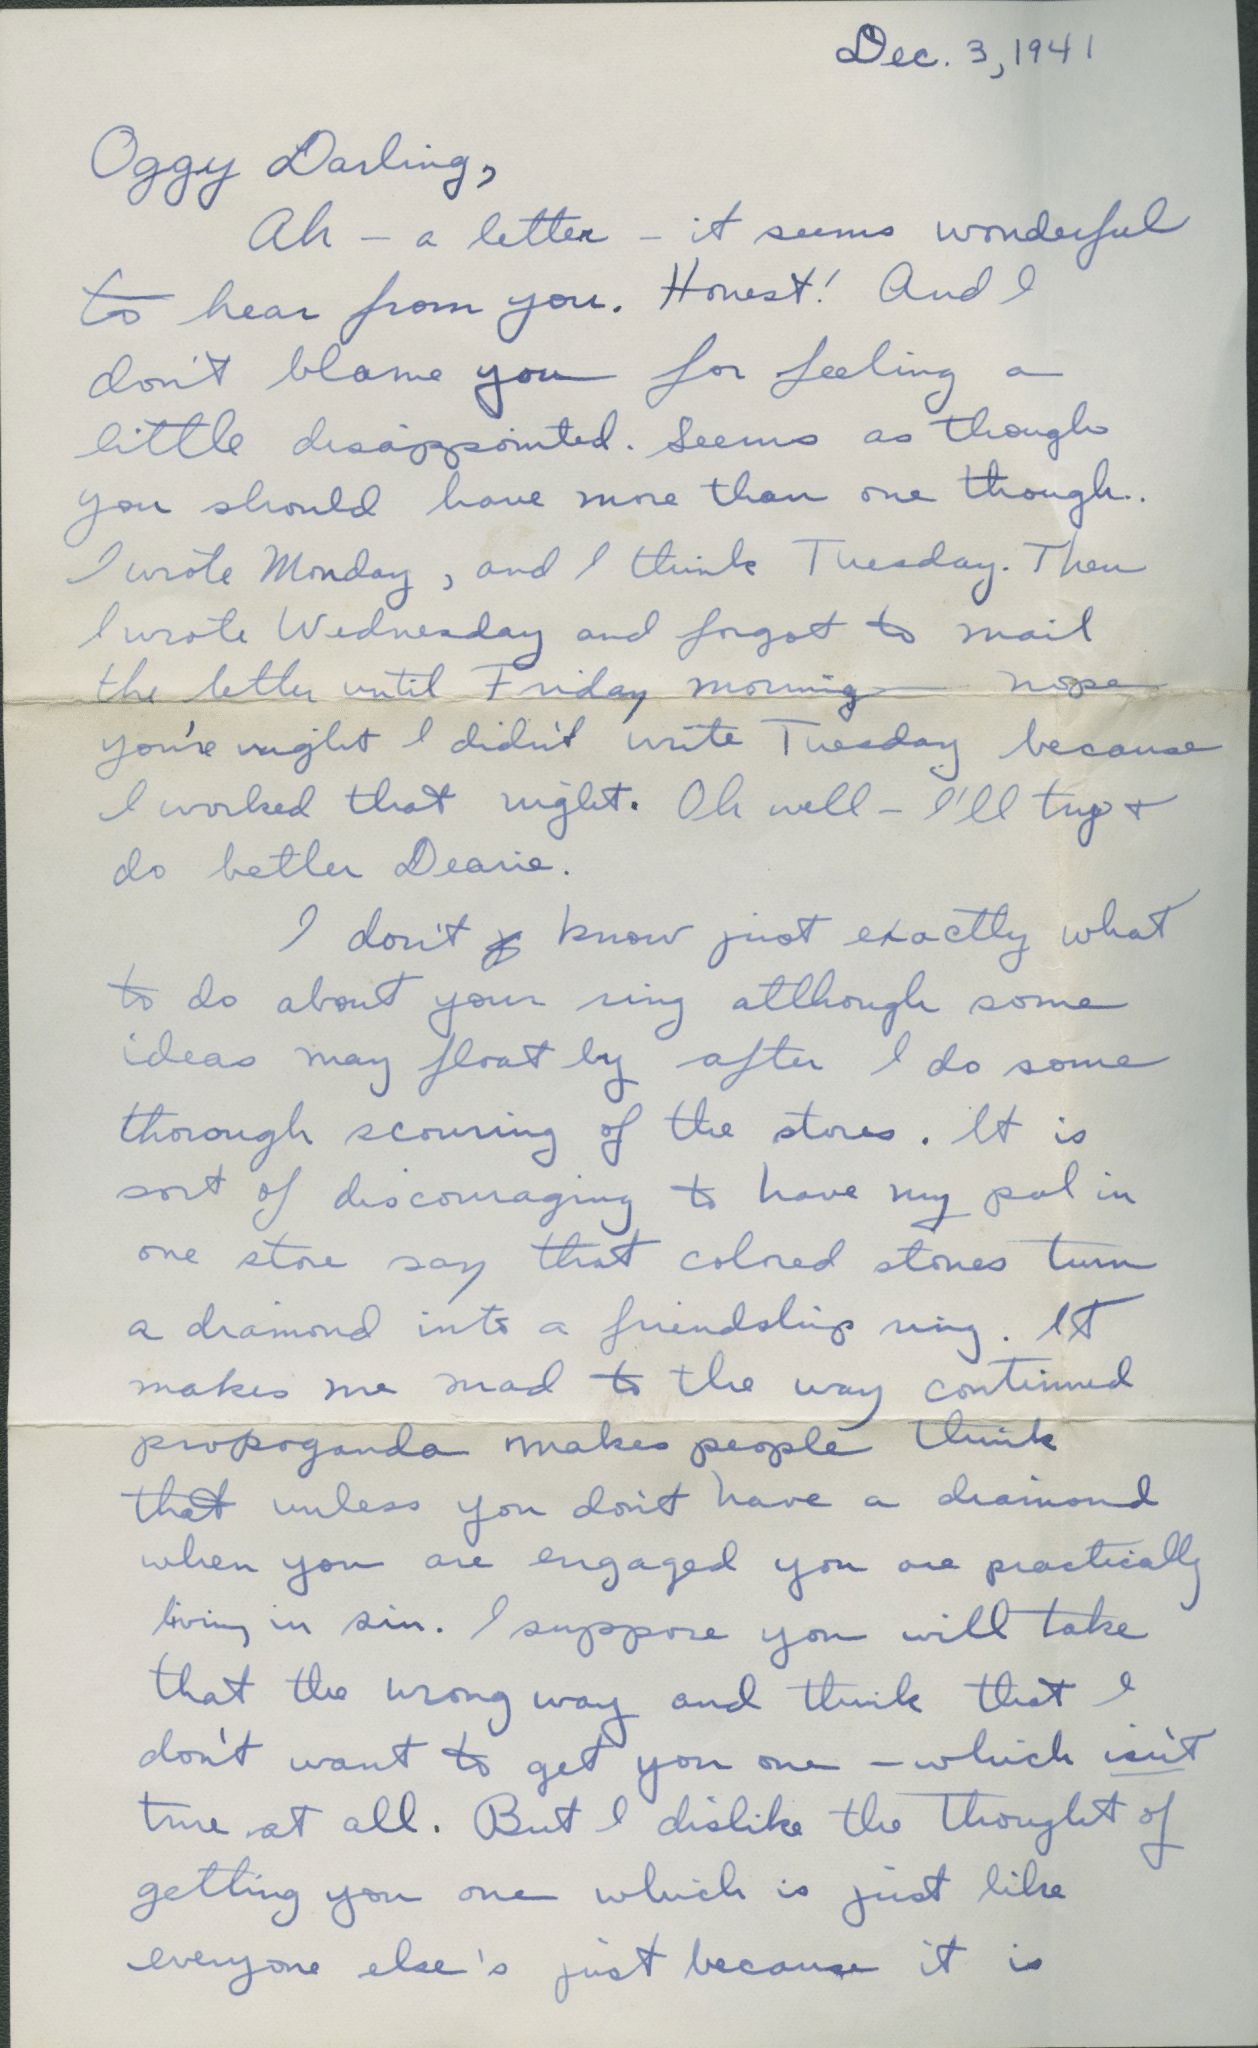 Dec. 3, 1941
Oggy Darling,
Ah – a letter – it seems wonderful
to hear from you. Honest! And I
don't blame you for feeling a
little disappointed. Seems as though
you should have more than one though.
I wrote Monday, and I think Tuesday. Then
I wrote Wednesday and forgot to mail
the letter until Friday morning — nope
you're right I didn't write Tuesday because
I worked that night. Oh well – I'll try +
do better Dearie.
I don't know just exactly what
to do about your ring atlhough some
ideas may float by after I do some
thorough scouring of the stores. It is
sort of discouraging to have my pal in
one store say that colored stones turn
a diamond into a friendship ring. It
makes me mad to the way continued
propoganda makes people think
that unless you don't have a diamond
when you are engaged you are practically
living in sin. I suppose you will take
that the wrong way and think that I
don't want to get you one – which isn't
true at all. But I dislike the thought of
getting you one which is just like
everyone else's just because it is